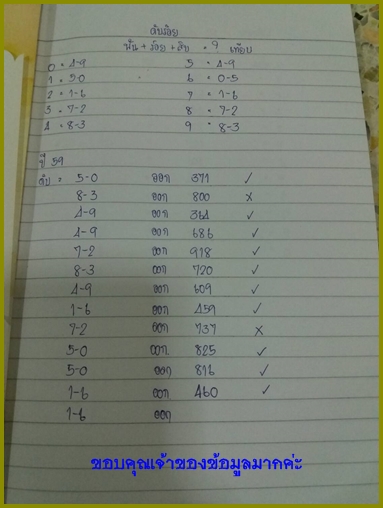 ดับร้อย
พัน + ร้อย + สิบ = ? เทียบ
0 = 4-9 5 = 4-9
1 = 5-0 6 = 0-5
2 = 1-6 7 = 1-6
3 = 7-2 8 = 7-2
4 = 8-3 9 = 8-3
ปี 59
ดับ = 5-0 ออก 371 ✓
8-3 ออก 800 x
4-9 ออก 364 ✓
4-9 ออก 686 ✓
7-2 ออก 918 ✓
8-3 ออก 720 ✓
4-9 ออก 609 ✓
1-6 ออก 459 ✓
7-2 ออก 737 x
5-0 ออก 825 ✓
5-0 ออก 816 ✓
1-6 ออก 460 ✓
1-6 ออก
ขอบคุณเจ้าของข้อมูลมากค่ะ